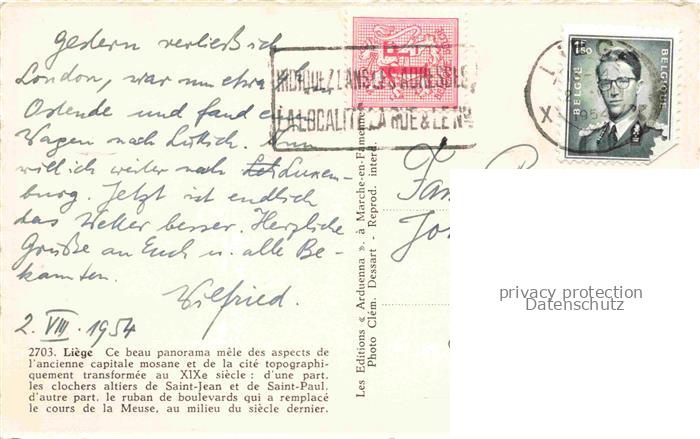 Gestern verließ ich
London, war um etwa
Ostende und fand
Wagen nach Lüttich. Nun
will ich weiter nach Luxem-
burg. Jetzt ist endlich
das Wetter besser. Herzliche
Grüße an Euch u. alle Be-
kannten.
Wilfried.
2. VIII. 1954
2703. Liège Ce beau panorama mêle des aspects de
l'ancienne capitale mosane et de la cité topographi-
quement transformée au XIXe siècle : d'une part,
les clochers altiers de Saint-Jean et de Saint-Paul,
d'autre part, le ruban de boulevards qui a remplacé
le cours de la Meuse, au milieu du siècle dernier.
Les Editions « Arduenna », à Marche-en-Famenne
Photo Clém. Dessart - Reprod. interd.
INDIQUEZ DANS LES ADRESSES
LA LOCALITÉ LA RUE & LE N°
1F50
BELGIE
BELGIQUE
1954
Fam
privacy protection
Datenschutz